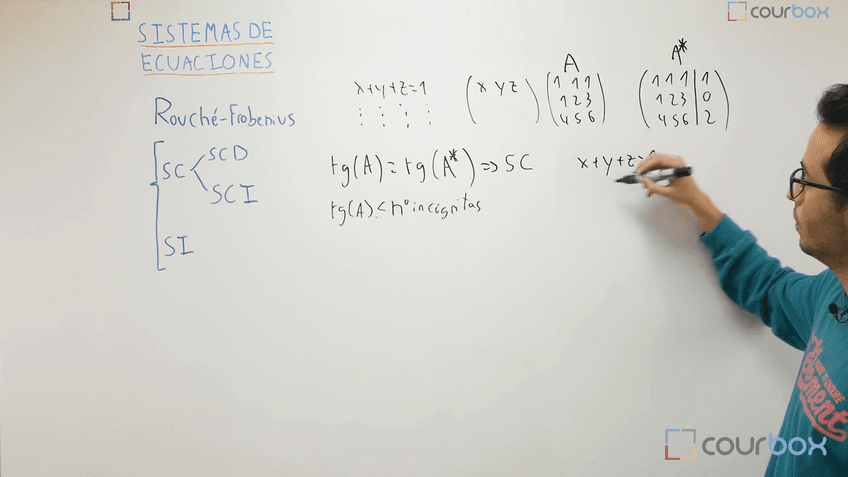 SISTEMAS DE
ECUACIONES
Rouché-Frobenius
SC
SCD
SCI
SI
x+y+z=1
(x y z)
A
1 1 1
1 2 3
4 5 6
A*
1 1 1 | 1
1 2 3 | 0
4 5 6 | 2
rg(A) = rg(A*) => SC
rg(A) < nº incógnitas
x+y+z=
courbox
courbox